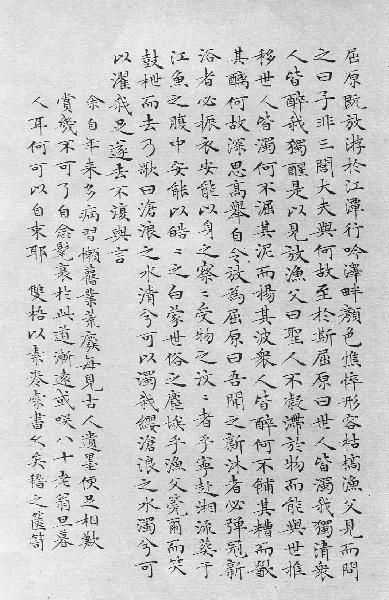 屈原既放游於江潭行吟澤畔顏色憔悴形容枯槁漁父見而問
之曰子非三閭大夫與何故至於斯屈原曰世人皆濁我獨清衆
人皆醉我獨醒是以見放漁父曰聖人不凝滯於物而能與世推
移世人皆濁何不淈其泥而揚其波衆人皆醉何不餔其糟而歠
其醨何故深思高舉自令放為屈原曰吾聞之新沐者必彈冠新
浴者必振衣安能以身之察〻受物之汶〻者乎寧赴湘流葬于
江魚之腹中安能以皓〻之白蒙世俗之塵埃乎漁父莞爾而笑
鼓枻而去乃歌曰滄浪之水清兮可以濯我纓滄浪之水濁兮可
以濯我足遂去不復與言
余自年来多病習懶舊業荒廢每見古人遺墨便且相歎
賞幾不可了自念鬢衰於此道漸遠或咲八十老翁旦暮
人耳何可以自束耶 雙梧以素卷索書久矣稽之篋笥